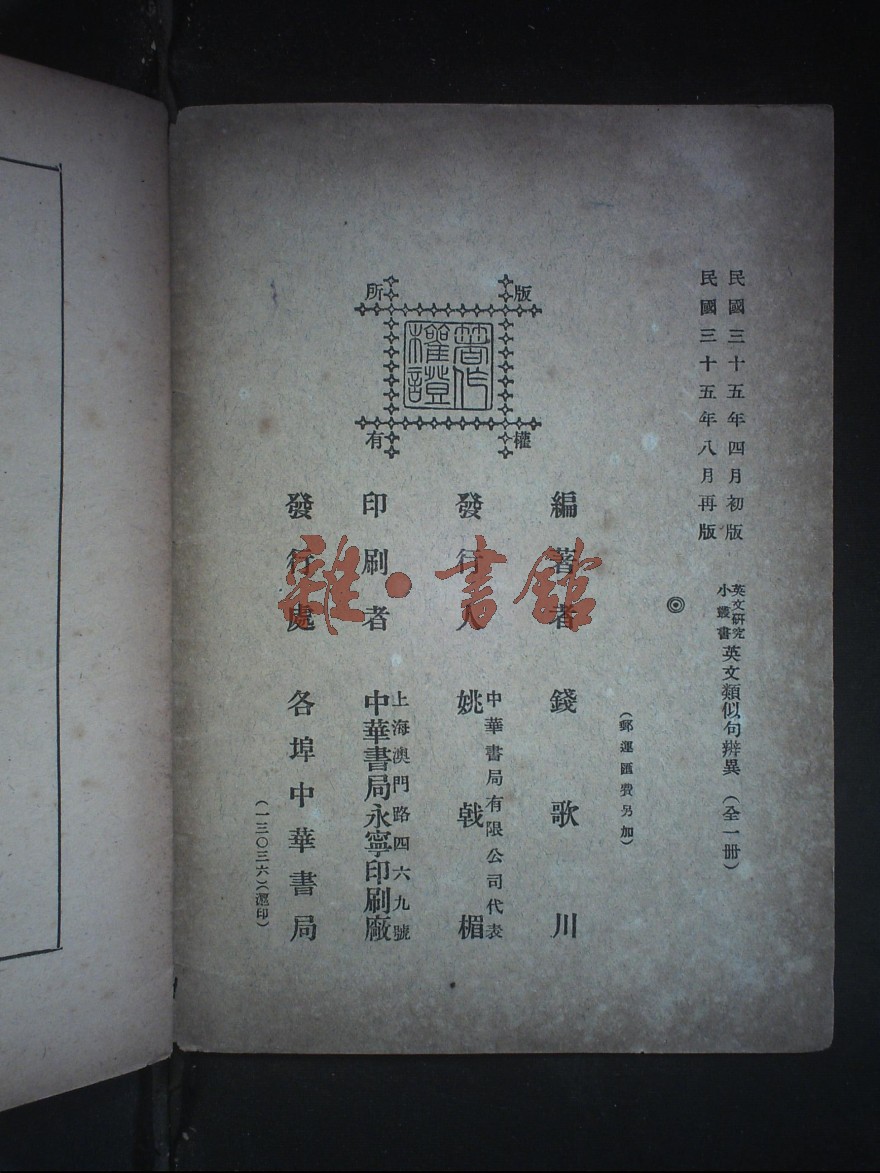 民國三十五年四月初版
民國三十五年八月再版
英文研究小叢書 英文類似句辨異 (全一册)
◎
(郵運匯費另加)
版權所有
著作權證
編著者 錢歌川
發行人 中華書局有限公司代表 姚戟楣
印刷者 上海澳門路四六九號 中華書局永寧印刷廠
發行處 各埠中華書局
(一三〇三六)(滬印)
雜·書館